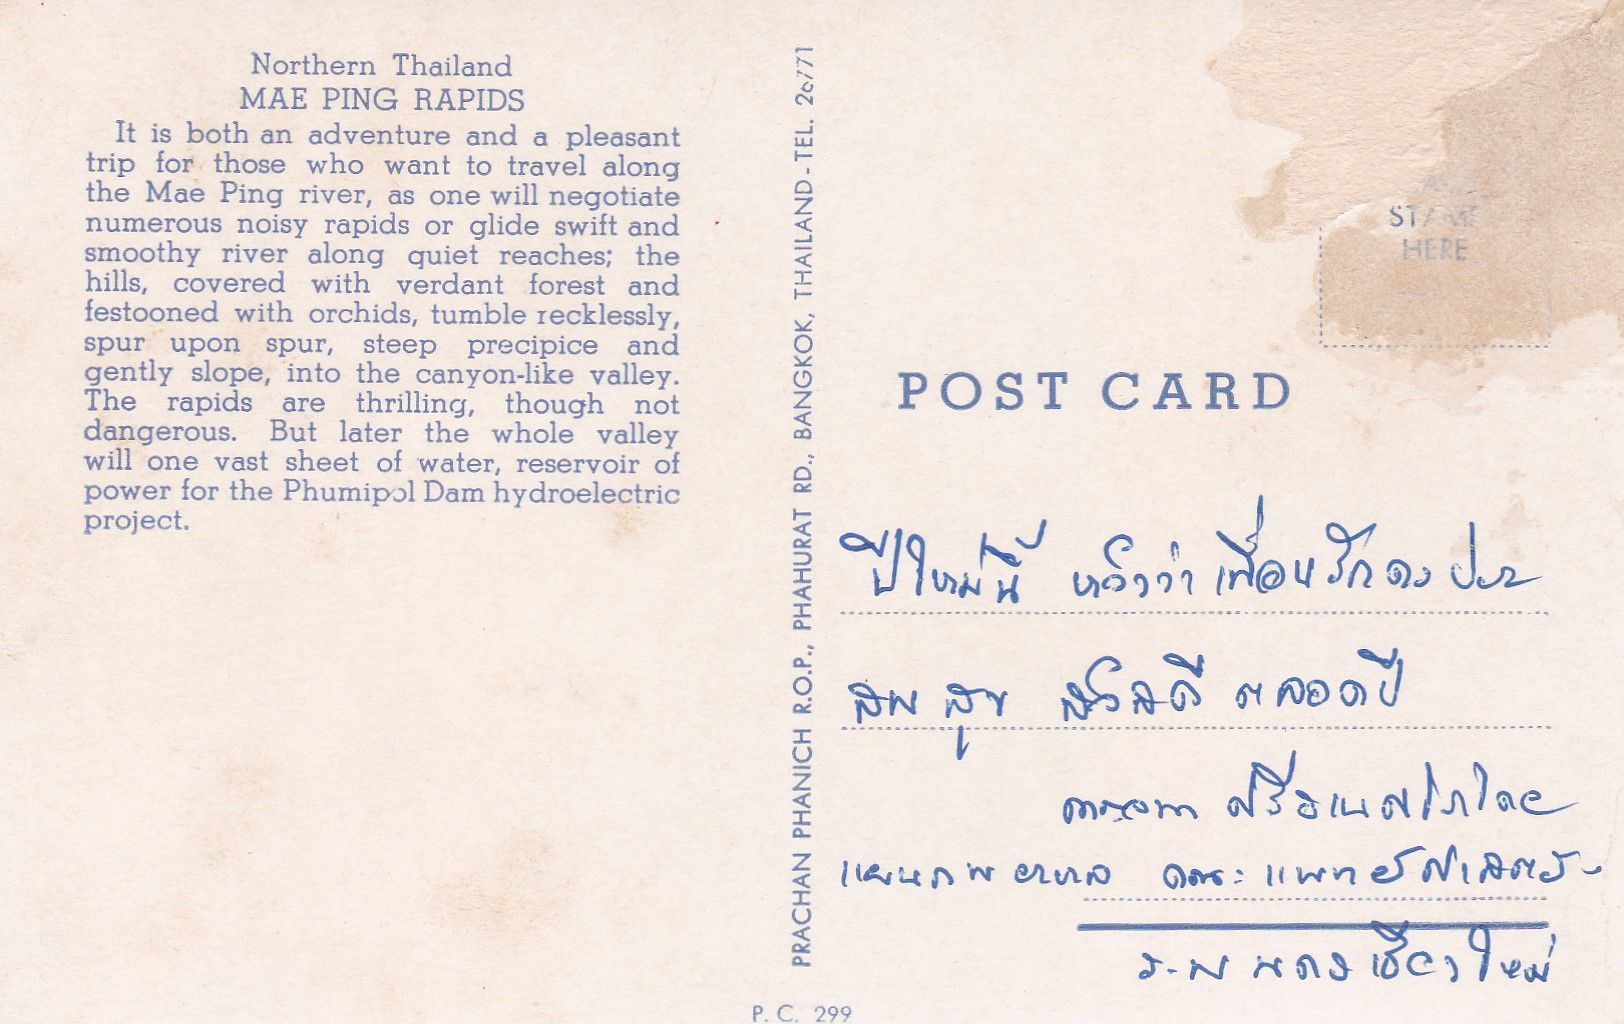 Northern Thailand
MAE PING RAPIDS
It is both an adventure and a pleasant
trip for those who want to travel along
the Mae Ping river, as one will negotiate
numerous noisy rapids or glide swift and
smoothy river along quiet reaches; the
hills, covered with verdant forest and
festooned with orchids, tumble recklessly,
spur upon spur, steep precipice and
gently slope, into the canyon-like valley.
The rapids are thrilling, though not
dangerous. But later the whole valley
will one vast sheet of water, reservoir of
power for the Phumipol Dam hydroelectric
project.
PRACHAN PHANICH R.O.P., PHAHURAT RD., BANGKOK, THAILAND-TEL. 20771
STAMP
HERE
POST CARD
ปีใหม่นี้ หวังว่า เพื่อนรักคงประ
สพ สุข สวัสดี ตลอดปี
แผนกพยาบาล คณะแพทย์ศาสตร์
ร.พ นครเชียงใหม่
P. C. 299